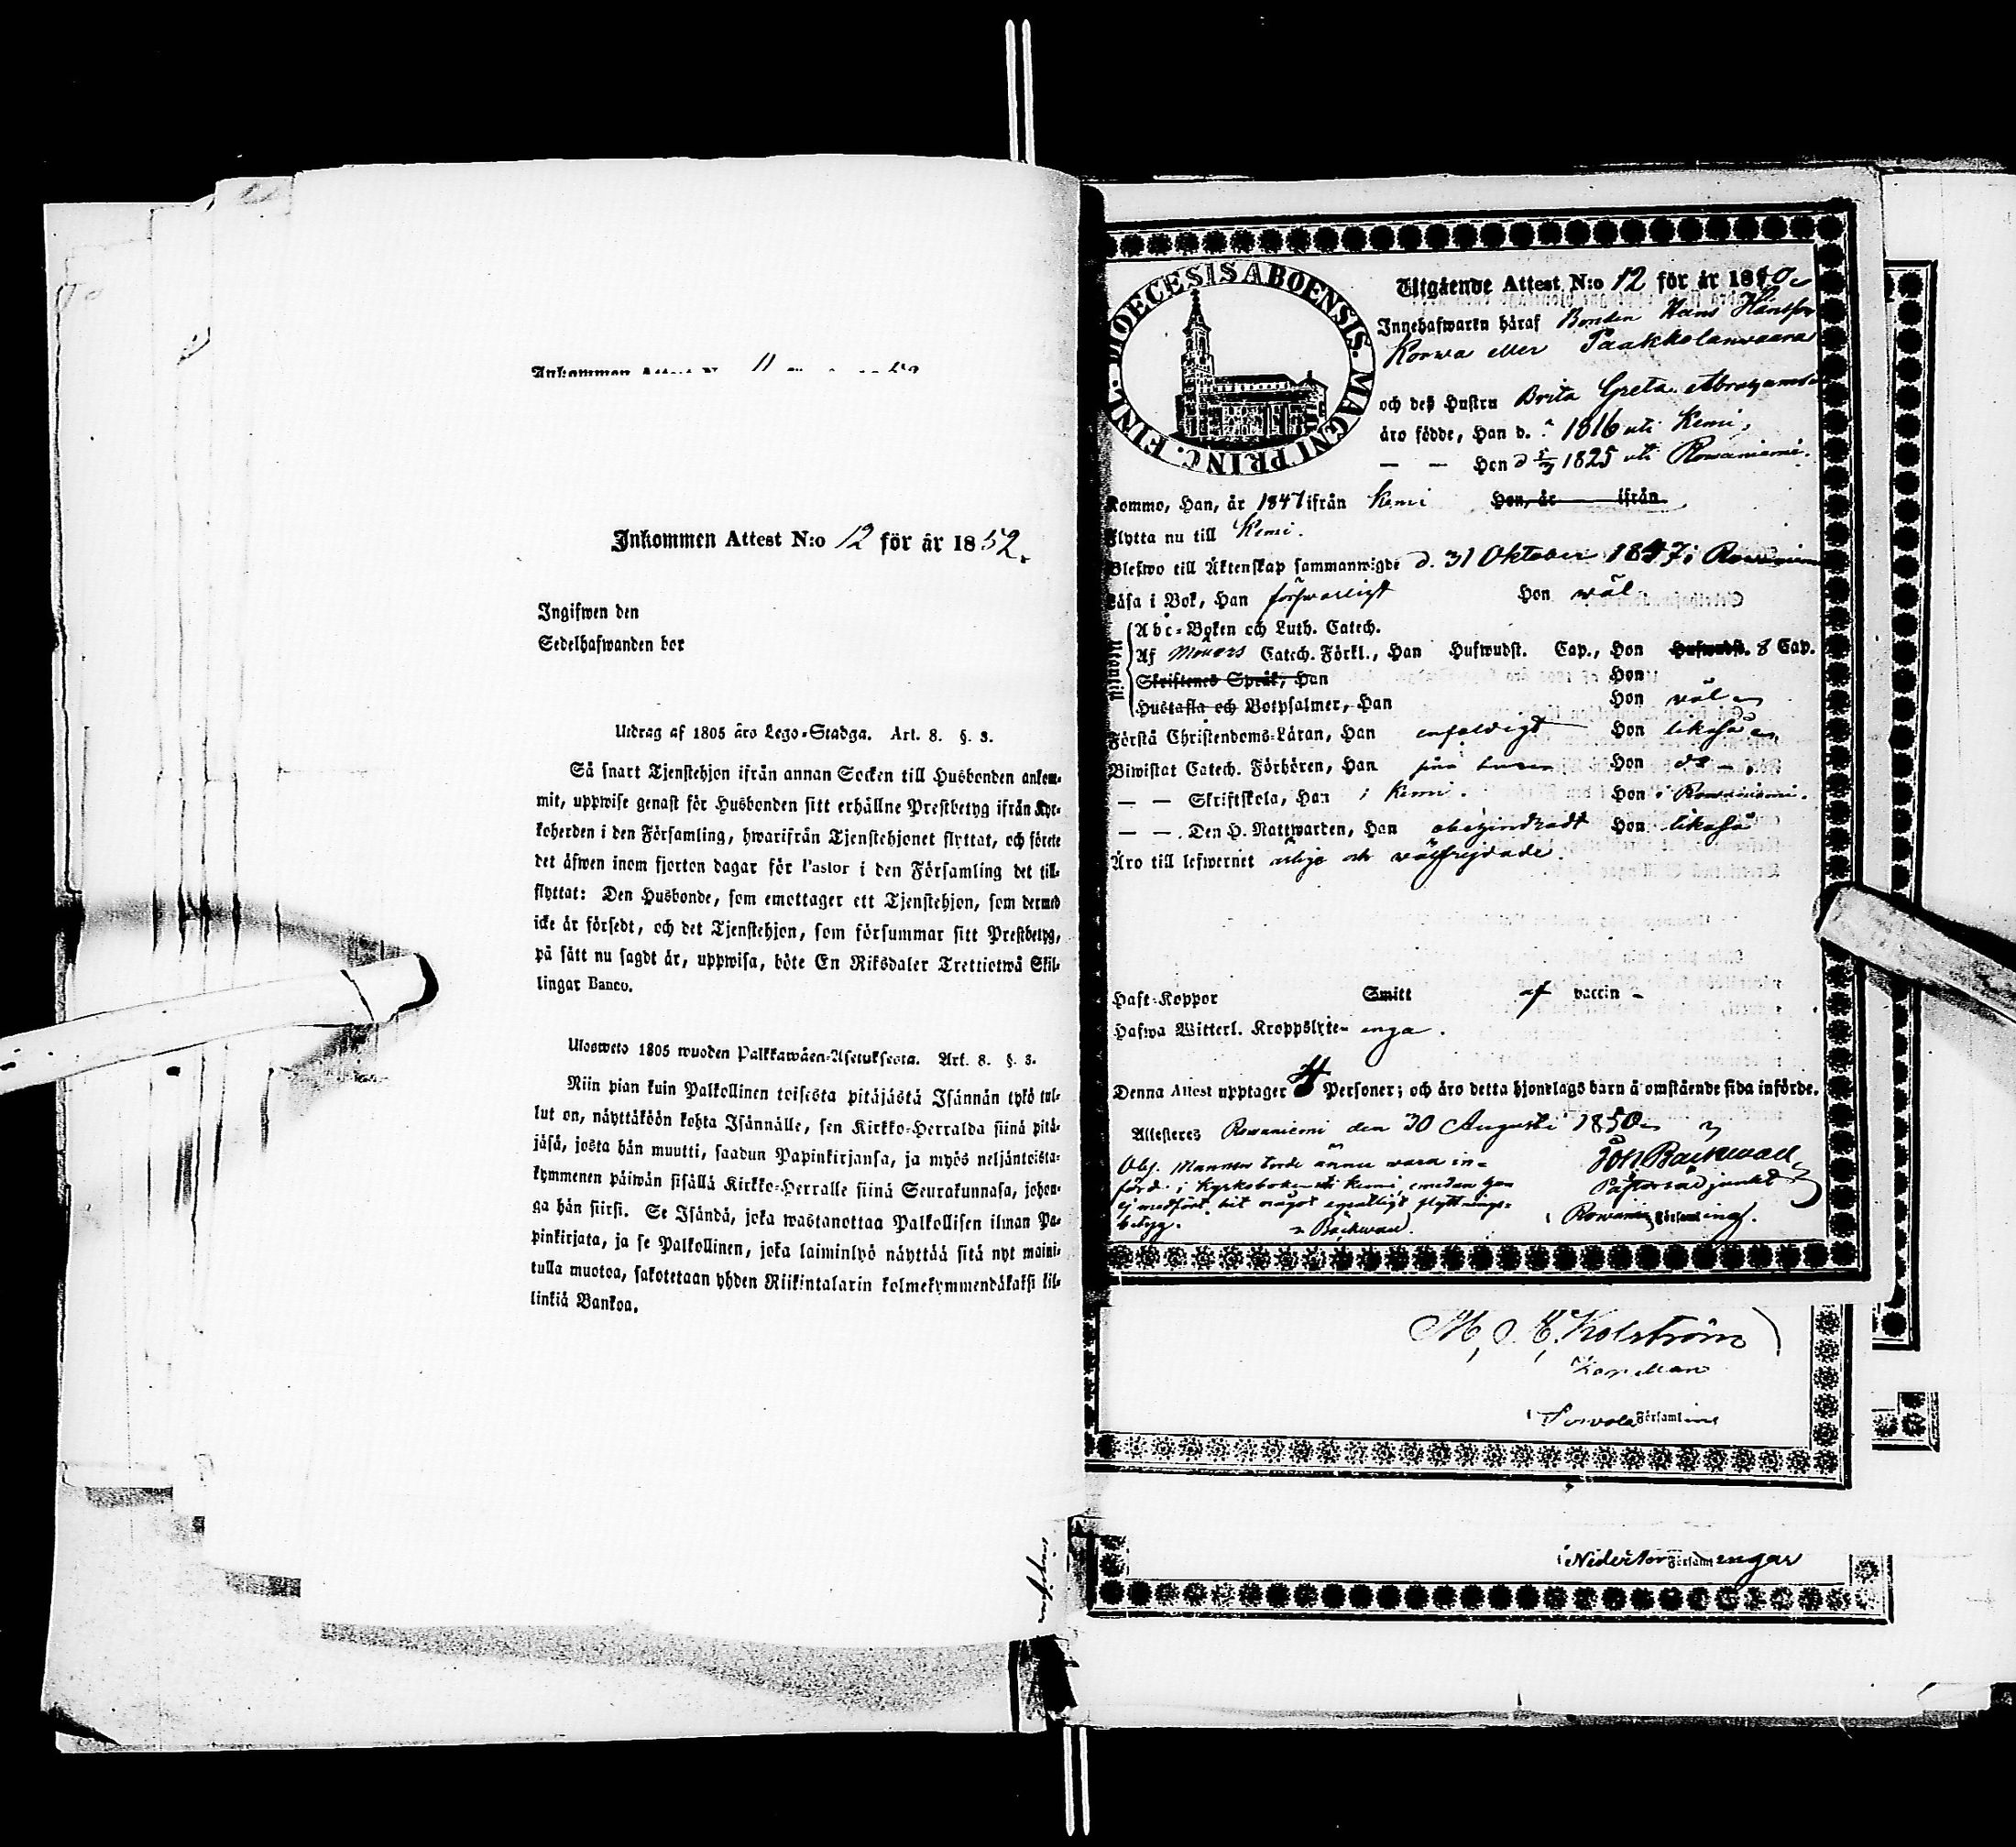 Inkommen Attest N:o 12 för år 1852.
Ingifwen den
Sedelhafwanden bor
Utdrag af 1805 års Lego-Stadga. Art. 8. §. 3.
Så snart Tjenstehjon ifrån annan Socken till Husbonden ankom-
mit, uppwise genast för Husbonden sitt erhållne Prestbetyg ifrån Kyr-
koherden i den Församling, hwarifrån Tjenstehjonet flyttat, och förete
det äfwen inom fjorton dagar för Pastor i den Församling det till-
flyttat: Den Husbonde, som emottager ett Tjenstehjon, som dermed
icke är försedt, och det Tjenstehjon, som försummar sitt Prestbetyg,
på sätt nu sagdt är, uppwisa, böte En Riksdaler Trettiotwå Skil-
lingar Banco.
Ulosweto 1805 wuoden Palkkawäen-Asetuksesta. Art. 8. §. 3.
Niin pian kuin Palkollinen toisesta pitäjästä Isännän tykö tul-
lut on, näyttäköön kohta Isännälle, sen Kirkko-Herralda siinä pitä-
jäsä, josta hän muutti, saadun Papinkirjansa, ja myös neljäntoista-
kymmenen päiwän sisällä Kirkko-Herralle siinä Seurakunnasa, johon-
ga hän siirsi. Se Isändä, joka wastanottaa Palkollisen ilman Pa-
pinkirjata, ja se Palkollinen, joka laiminlyö näyttää sitä nyt maini-
tulla muotoa, sakotetaan yhden Riikintalarin kolmekymmendäkaksi kil-
linkiä Bankoa.
DIOECESIS ABOENSIS. MAGNI PRINC. FINL.
Utgående Attest N:o 12 för år 1850
Innehafwaren häraf Bonden Hans
Korwa eller Paakkolanwaara
och deß Hustru Brita Greta
äro födde, Han d. 1816 uti Kemi,
— — Hon d 1825 uti Rowaniemi.
Kommo, Han, år 1847 ifrån Kemi Hon, år ifrån
Flytta nu till Kemi.
Blefwo till Äktenskap sammanwigde d. 31 Oktober 1847 i
Läsa i Bok, Han förswarligt Hon wäl.
Utantill
Abc-Boken och Luth. Catech.
Af Möllers Catech. Förkl., Han Hufwudst. Cap., Hon Hufwudst. 8 Cap.
Skriftenes Språk, Han Hon
Hustafla och Botpsalmer, Han Hon wäl
Förstå Christendoms-Läran, Han enfaldigt Hon likaså
Biwistat Catech. Förhören, Han Hon do
— — Skriftskola, Han i Kemi. Hon i Rowaniemi.
— — Den H. Nattwarden, Han obehindradt Hon likaså
Äro till lefwernet ärlige och wälfrejdade.
Haft Koppor Smitt af vaccin
Hafwa Witterl. Kroppslyte inga.
Denna Attest upptager 4 Personer; och äro detta hjonelags barn å omstående sida införde.
Attesteres Rowaniemi den 30 Augusti 1850
Obs. Mannen torde ännu wara in-
förd i Kyrkoboken uti Kemi emedan han
ej medfört hit något egentligt flyttnings-
betyg. Bäckwall.
Joh Bäckwall
Pastorsadjunkt
i Rowaniemi Församling.
M. Kolström
Kapellan
i Terwola Församling
i Nedertorneå Församlingar